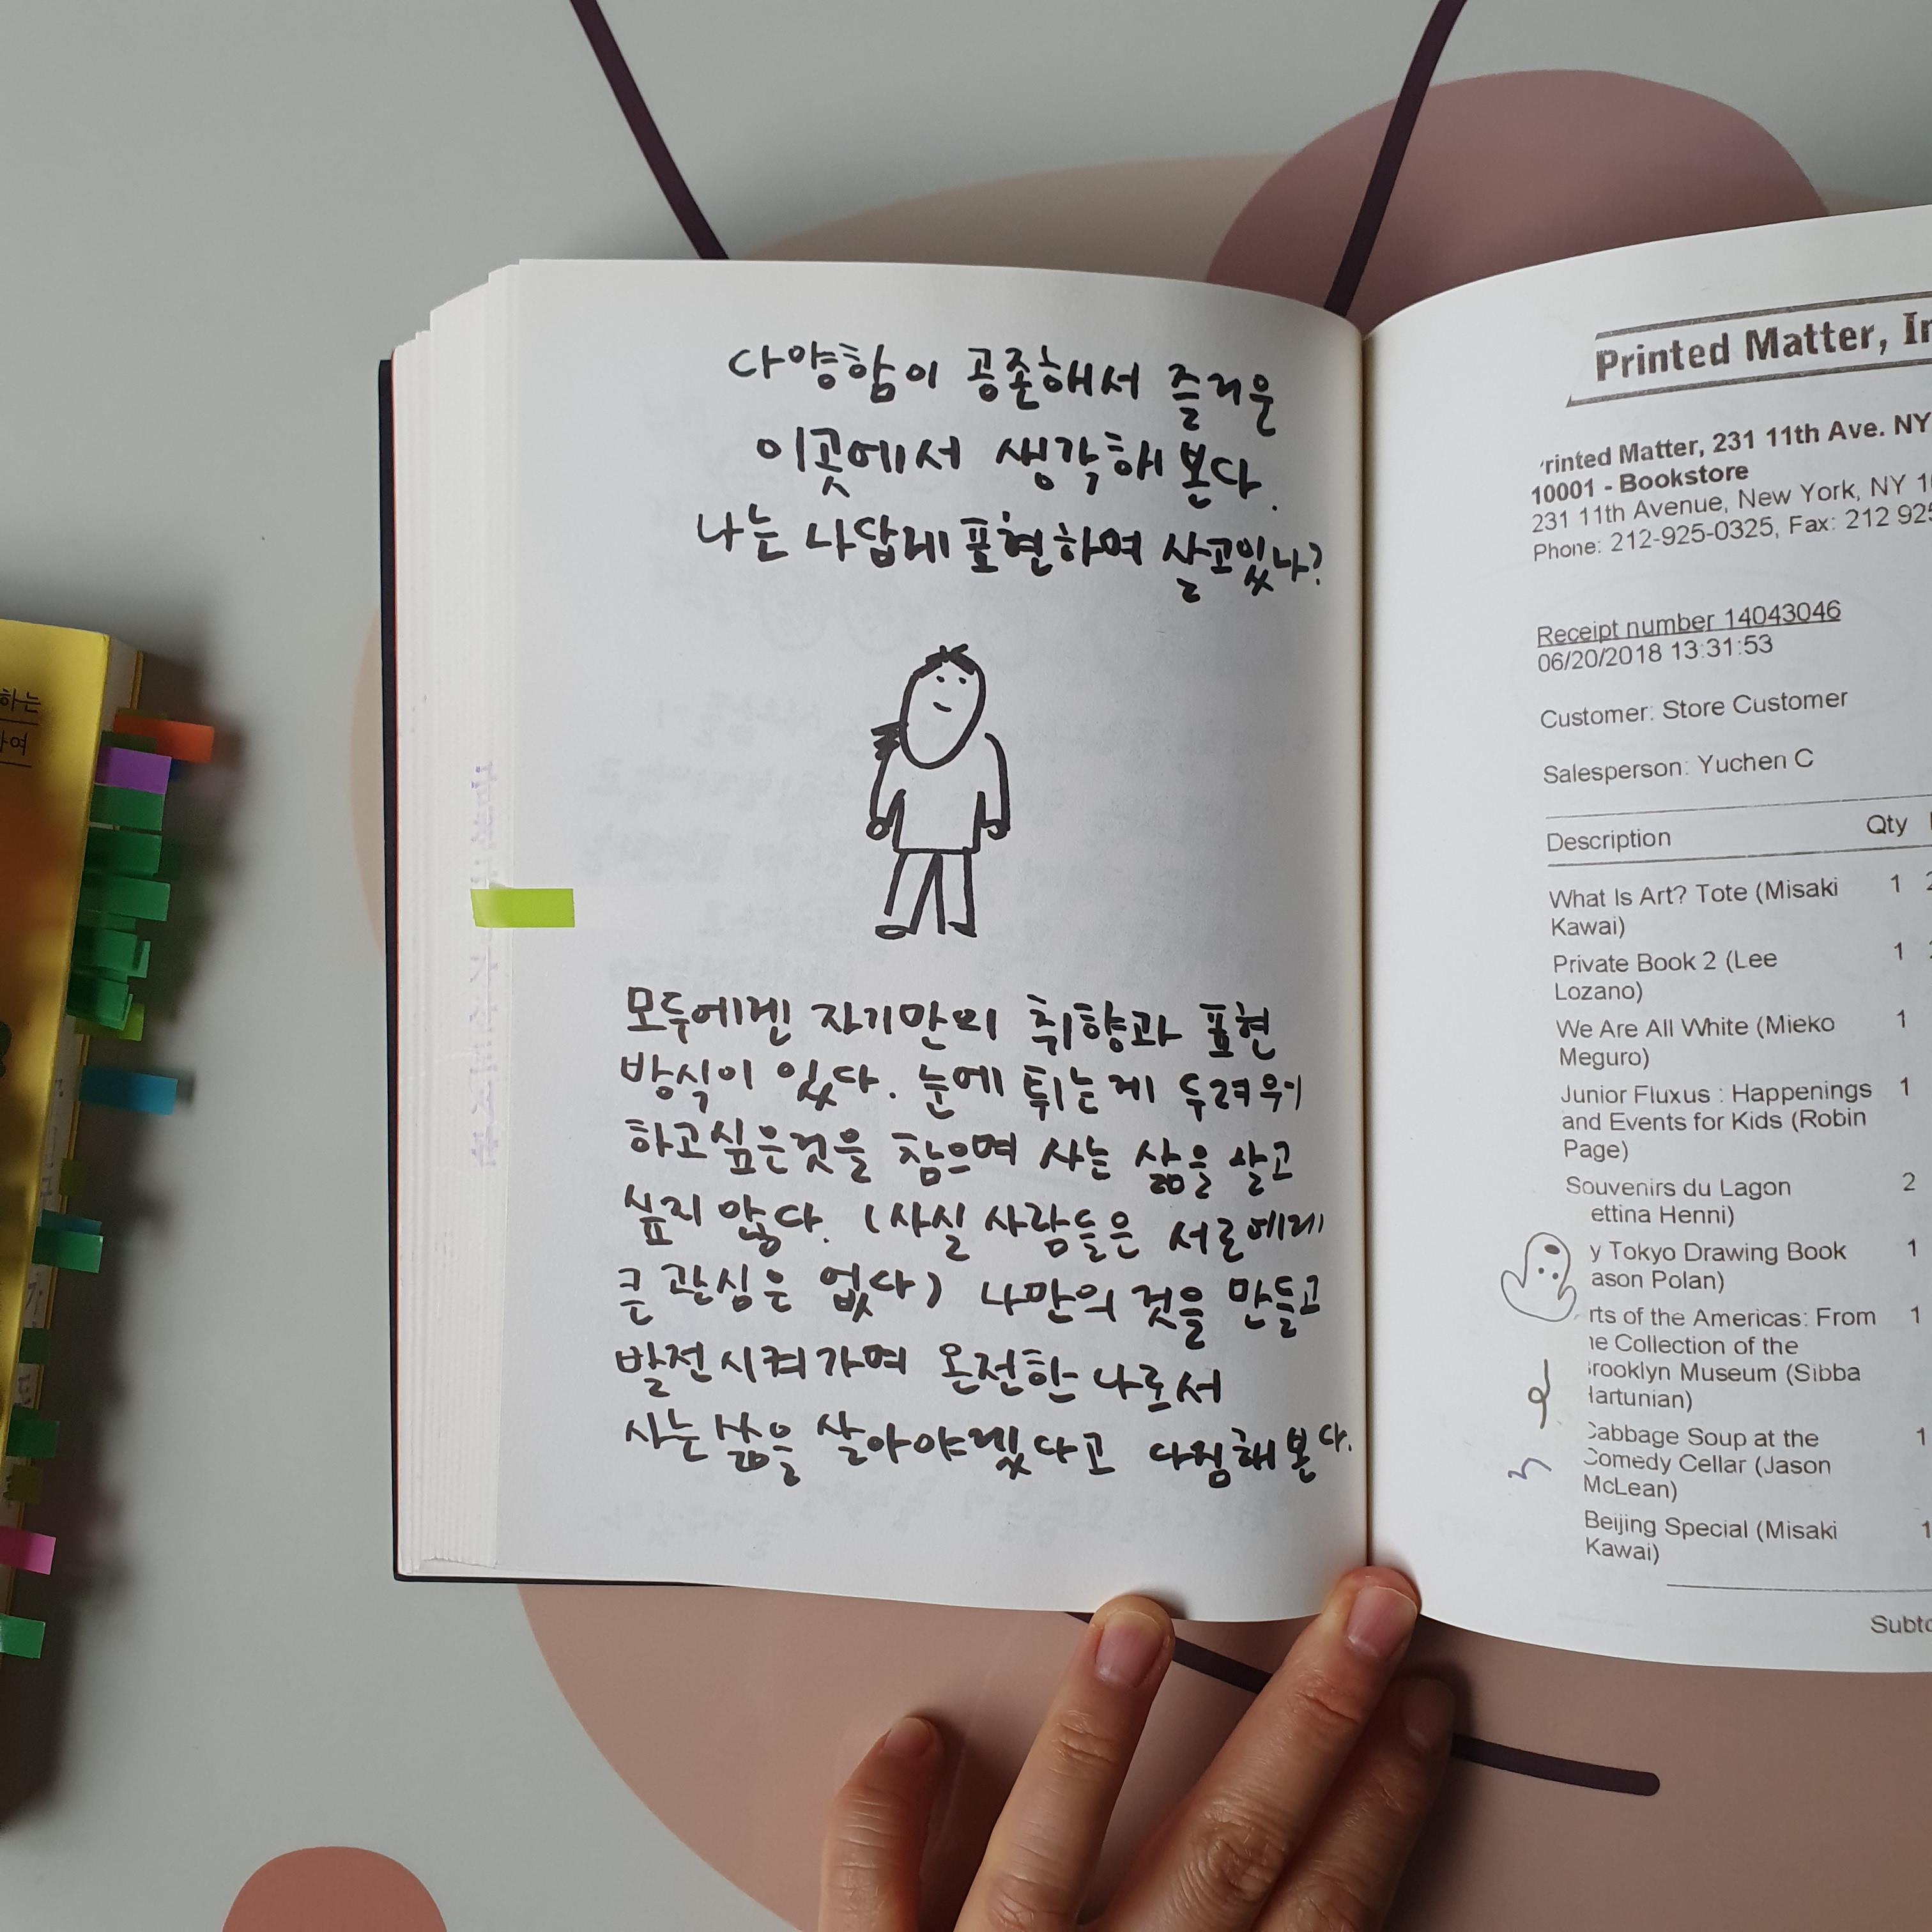 다양함이 공존해서 즐거운
이곳에서 생각해 본다.
나는 나답게 표현하며 살고있나?
모두에겐 자기만의 취향과 표현
방식이 있다. 눈에 튀는게 두려워
하고싶은것을 참으며 사는 삶을 살고
싶지 않다. (사실 사람들은 서로에게
큰 관심은 없다) 나만의 것을 만들고
발전시켜가며 온전한 나로서
사는 삶을 살아야겠다고 다짐해 본다.
Printed Matter,
rinted Matter, 231 11th Ave. NY
10001 - Bookstore
231 11th Avenue, New York, NY
Phone: 212-925-0325, Fax: 212
Receipt number 14043046
06/20/2018 13:31:53
Customer: Store Customer
Salesperson: Yuchen C
Description Qty
What Is Art? Tote (Misaki 1
Kawai)
Private Book 2 (Lee 1
Lozano)
We Are All White (Mieko 1
Meguro)
Junior Fluxus : Happenings 1
and Events for Kids (Robin
Page)
Souvenirs du Lagon 2
ettina Henni)
y Tokyo Drawing Book 1
ason Polan)
rts of the Americas: From 1
e Collection of the
rooklyn Museum (Sibba
artunian)
abbage Soup at the 1
omedy Cellar (Jason
McLean)
Beijing Special (Misaki 1
Kawai)
하는